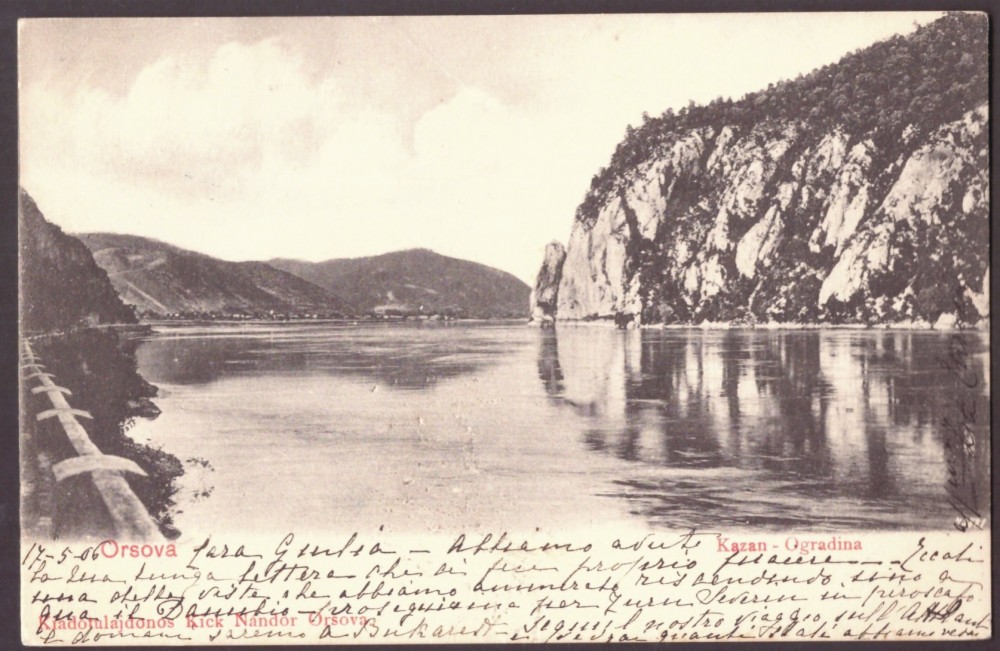 17-5-06 Orsova Cara Giulia - Abbiamo avuto
Kazan - Ogradina
la sua lunga lettera che di fece proprio piacere - Eccoti
una delle viste che abbiamo ammirato risalendo sino a
qua il Danubio - proseguiamo per Turn Severin in piroscafo
Kiadótulajdonos Kick Nándor Orsova
e domani saremo a Bukarest - Segui il nostro viaggio sull'
e vedrai quante abbiamo